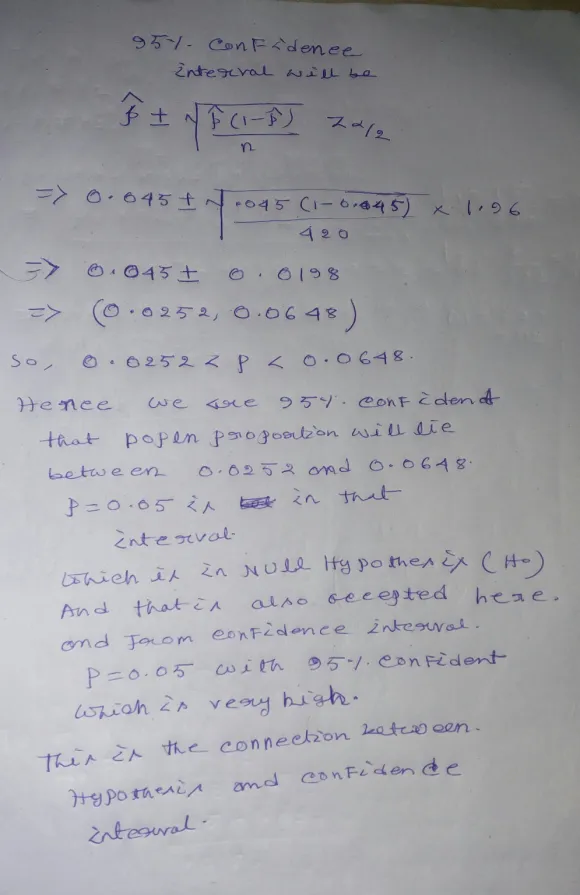 95%. Confidence
interval will be
p̂ ± √ p̂(1-p̂) / n Zα/2
=> 0.045 ± √ .045 (1-0.045) / 420 × 1.96
=> 0.045 ± 0.0198
=> (0.0252, 0.0648)
So, 0.0252 < p < 0.0648.
Hence we are 95%. confident
that popln proportion will lie
between 0.0252 and 0.0648.
p=0.05 is in that
interval.
Which is in NULL Hypothesis (H0)
And that is also accepted here.
and from confidence interval.
p=0.05 with 95%. confident
which is very high.
This is the connection between.
Hypothesis and confidence
interval.